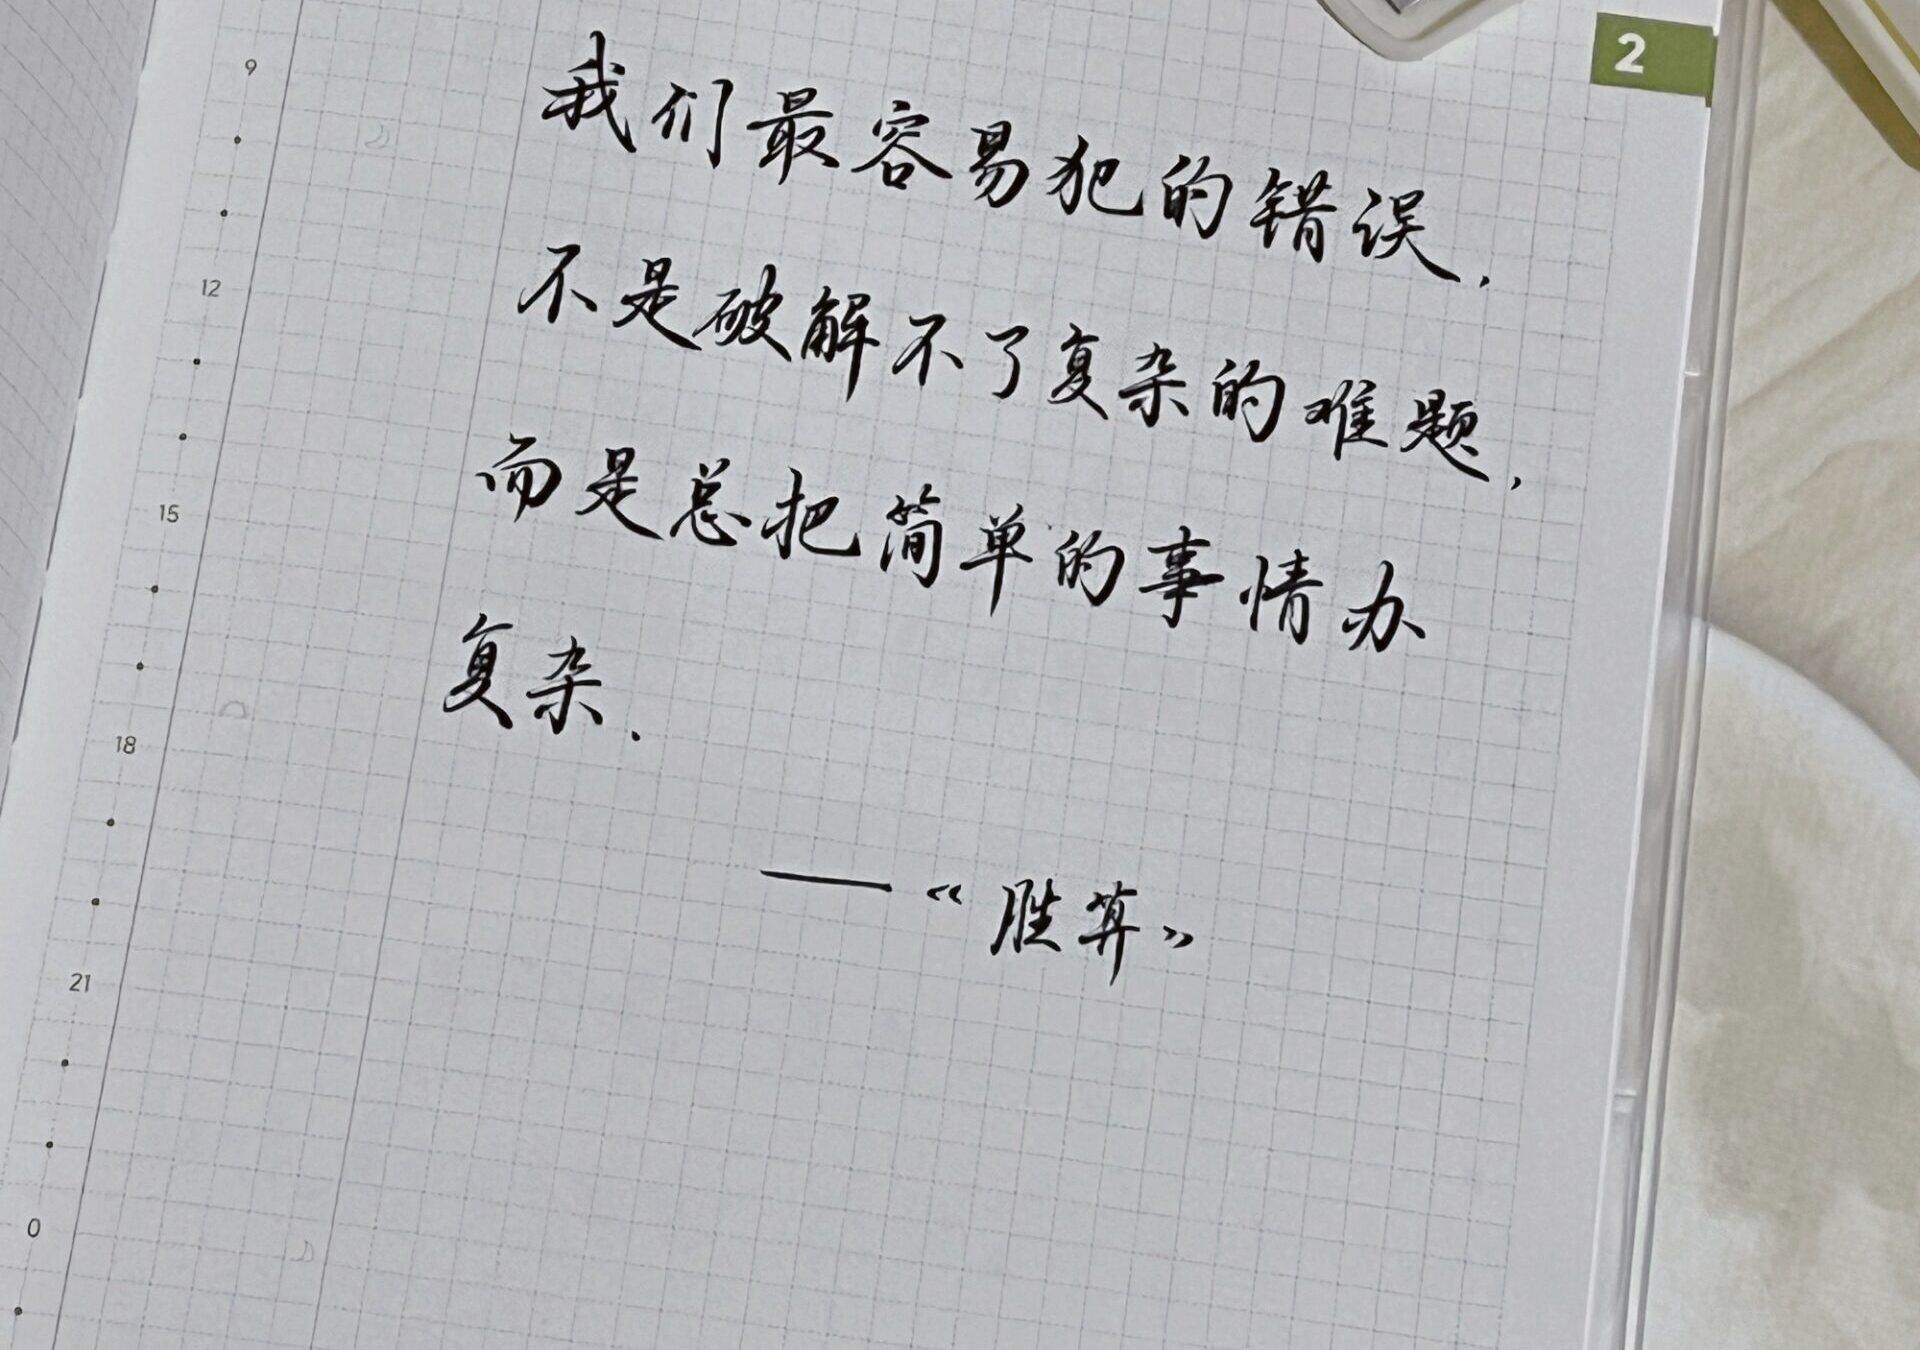 2
9
我们最容易犯的错误,
12
不是破解不了复杂的难题,
15
而是总把简单的事情办
复杂.
18
——《胜算》
21
0